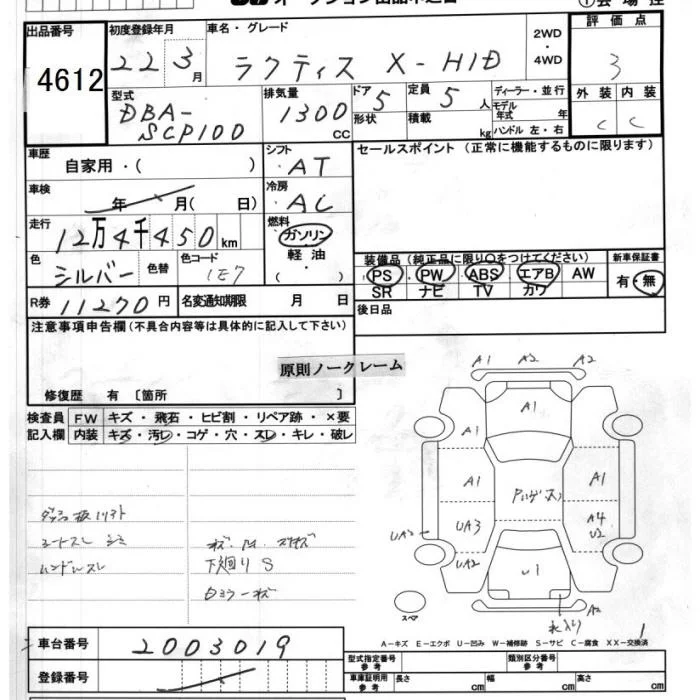 出品番号
4612
初度登録年月
22 3月
車名・グレード
ラクティス X-HID
2WD
・
4WD
評価点
3
型式
DBA-
SCP100
排気量
1300
CC
ドア
5
形状
定員
5人
積載
kg
ディーラー・並行
モデル
年式 年
ハンドル 左・右
外装 内装
C C
車歴
自家用・( )
シフト
AT
セールスポイント (正常に機能するものに限ります)
車検
年 月( 日)
冷房
AC
走行
12万4千450km
燃料
ガソリン
軽油
( )
色
シルバー
色替
色コード
1E7
装備品 (純正品に限り○をつけてください)
PS・PW・ABS・エアB・AW
SR ナビ TV カワ
新車保証書
有・無
R券 11270円
名変通知期限 月 日
後日品
注意事項申告欄(不具合内容等は具体的に記入して下さい)
原則ノークレーム
修復歴 有 〔箇所 〕
検査員
記入欄
FW キズ・飛石・ヒビ割・リペア跡・×要
内装 キズ・汚レ・コゲ・穴・スレ・キレ・破レ
ハンドルスレ
下廻りS
A1 A2 A2
A1
A1
A1
A1
UA3
A4
U2
UA2
UA2
U1
A2
スペア
A-キズ E-エクボ U-凹み W-補修跡 S-サビ C-腐食 XX-交換済
車台番号
2003019
登録番号
型式指定番号
参考
類別区分番号
参考
車庫証明用
参考
長さ cm
幅 cm
高さ cm